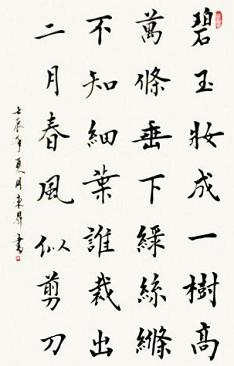 碧玉妝成一樹高
萬條垂下綠絲縧
不知細葉誰裁出
二月春風似剪刀
壬辰年夏月東昇書